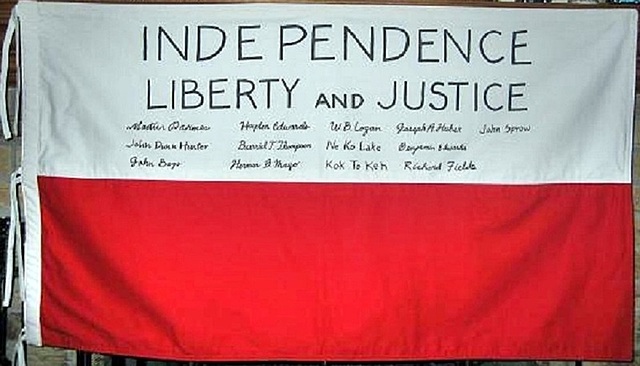 INDEPENDENCE
LIBERTY AND JUSTICE
Martin Parmer Hayden Edwards W.B. Legon Joseph A. Huber John Sprow
John Dunn Hunter Burrell T. Thompson Ne Ko Lake Benjamin Edwards
John Bags Herman B. Mayo Kok To Keh Richard Fields